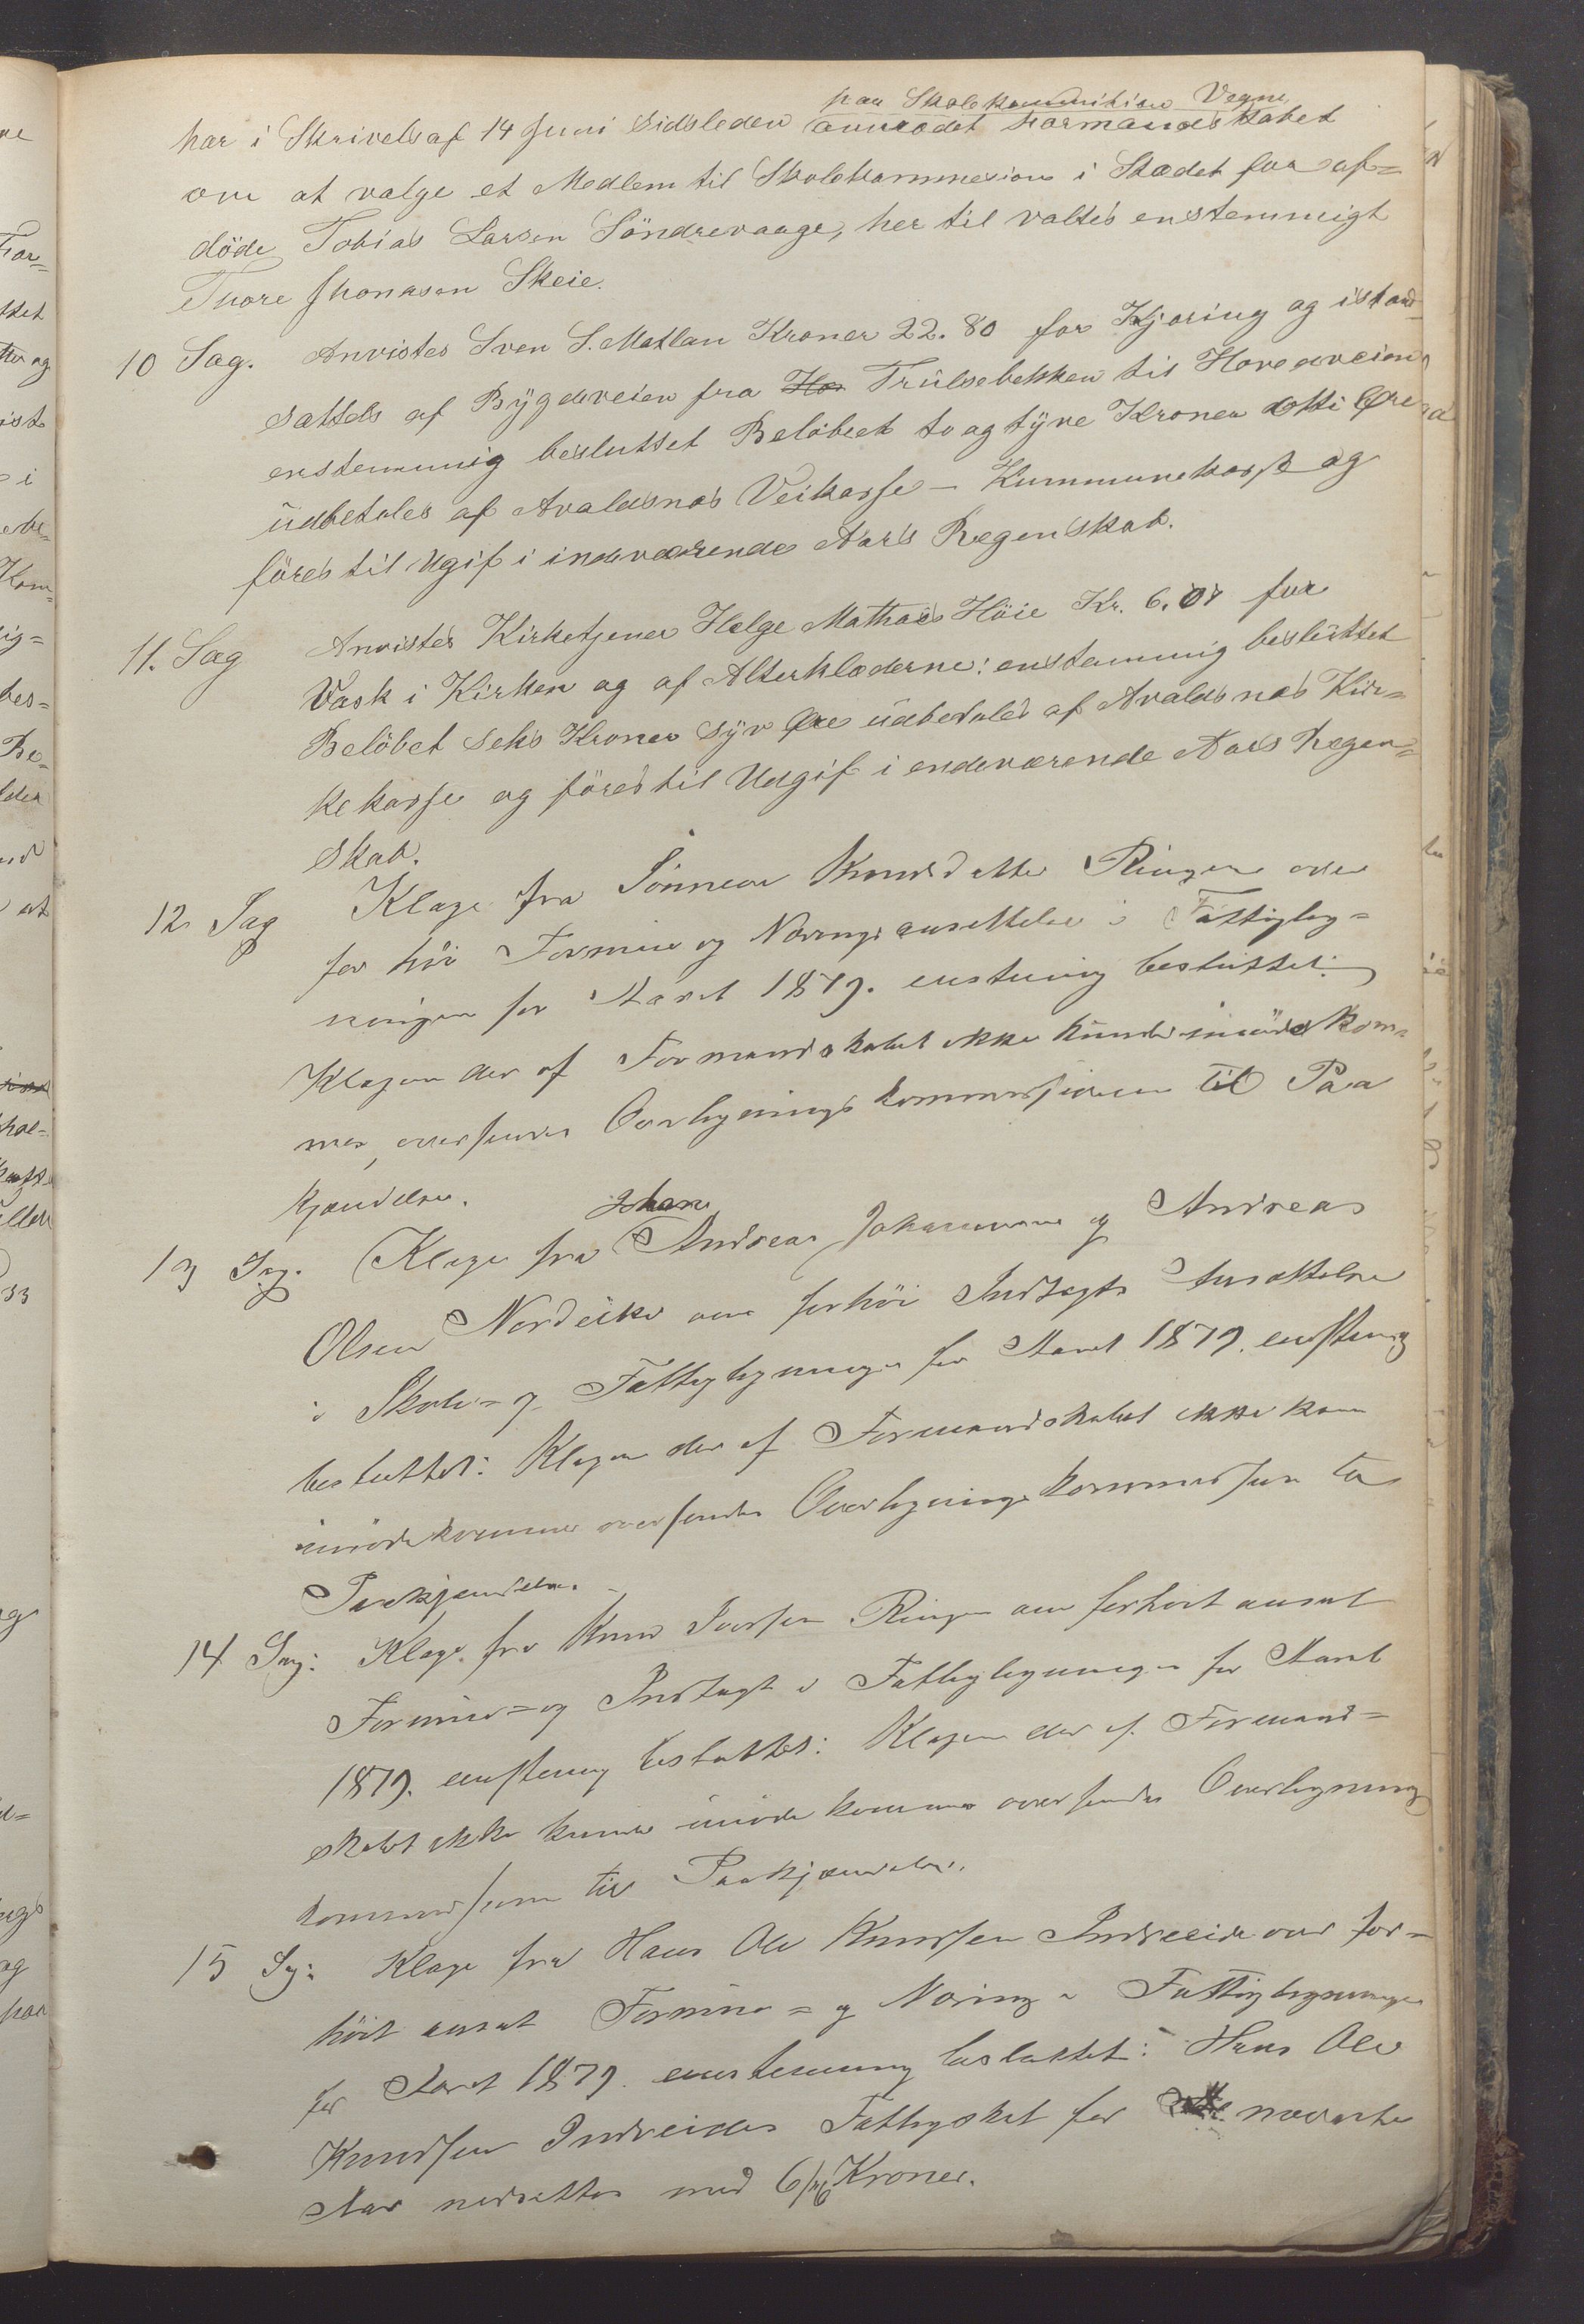 paa Skolekommitine Vegne,
har i Skrivels af 14 Juni sidsleden anmodet Formandskabet
om at valge et Medlem til Skolekommesion i Stædet for af-
döde Tobias Larsen Söndrevaage, her til valtes enstemmigt
Tuore Jhonasen Skeie.
10 Sag. Anvistes Sven S. Matlan Kroner 22.80 for Kjøring og istand-
sattels af Bÿgdeveien fra Trülsebekken til Hovedveien
enstemmig besluttet Belöbet to og tÿve Kroner otti Øre
üdbetales af Avaldsnæs Veikasse - Kummunekasse og
föres til Ugift i indeværende Aars Regenskab.
11. Sag Anvistes Kirketjener Helge Mathias Höie Kr. 6.07 for
Vask i Kirken og af Alterklæderne: enstemmig beslüttet
Belöbet seks Kroner sÿv Øre üdbetales af Avaldsnæs Kir-
kekasse og föres til Udgift i endeværende Aars Regen-
skab.
12 Sag Klage fra Sönneva Knudsdatter Ringen over
for höi Formue og Nærings ansettelse i Fattiglig-
ningen for Aaret 1879. enstemig besluttet:
Klagen der af Formandskabet ikke kunde imödekom-
mes, oversendes Overlignings kommissionen til Paa
kjendelse.
13 Sag. Klage fra Johan Andreas Johannesen og Andreas
Olsen Nordeike over forhöi Indtægts Ansættelse
i Skole- og Fattigligningen for Aaret 1879. enstemig
besluttet: Klagen der af Formandskabet ikke kan
imödekommes oversendes Overligningskommissionen til
Paakjendelse.
14 Sag: Klage fra Knud Iversen Ringen om forhöit ansat
Formue- og Indtægt i Fattigligningen for Aaret
1879. enstemig besluttet: Klagen der af Formand-
skabet ikke kunde imöde kommes oversendes Overlignings
kommissionen til Paakjendelse.
15 Sag: Klage fra Hans Ole Knudsen Indreeide over for-
höit ansat Formue- og Næring i Fattigligningen
for Aaret 1879. enstemmig besluttet: Hans Ole
Knudsen Indreeides Fattigskat for nærverende
Aar nedsættes med 6/ Kroner.